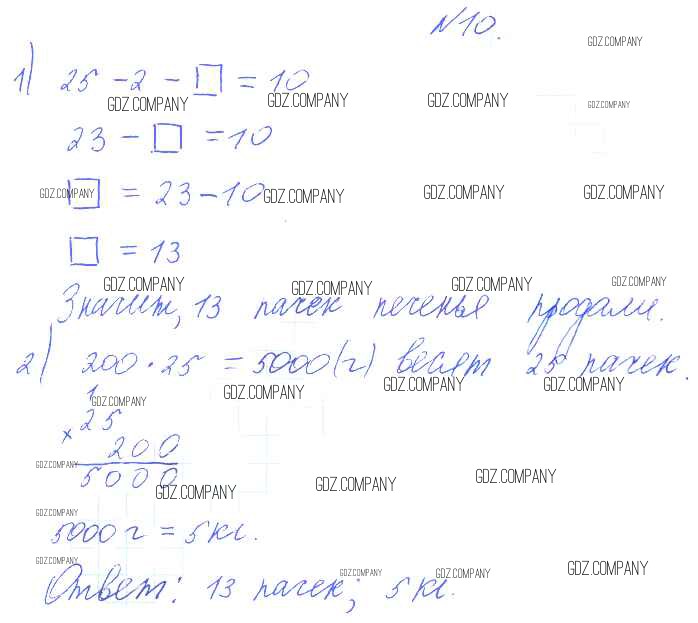 №10.
GDZ.COMPANY
1) 25 - 2 - □ = 10
GDZ.COMPANY GDZ.COMPANY GDZ.COMPANY GDZ.COMPANY
23 - □ = 10
GDZ.COMPANY □ = 23 - 10 GDZ.COMPANY GDZ.COMPANY GDZ.COMPANY
□ = 13
GDZ.COMPANY GDZ.COMPANY GDZ.COMPANY GDZ.COMPANY
Значит, 13 пачек печенья продали.
2) 200 · 25 = 5000 (г) весят 25 пачек.
GDZ.COMPANY GDZ.COMPANY GDZ.COMPANY
1 GDZ.COMPANY
× 25
200
GDZ.COMPANY
5000
GDZ.COMPANY GDZ.COMPANY GDZ.COMPANY
GDZ.COMPANY
5000 г = 5 кг.
GDZ.COMPANY GDZ.COMPANY GDZ.COMPANY GDZ.COMPANY
Ответ: 13 пачек; 5 кг.